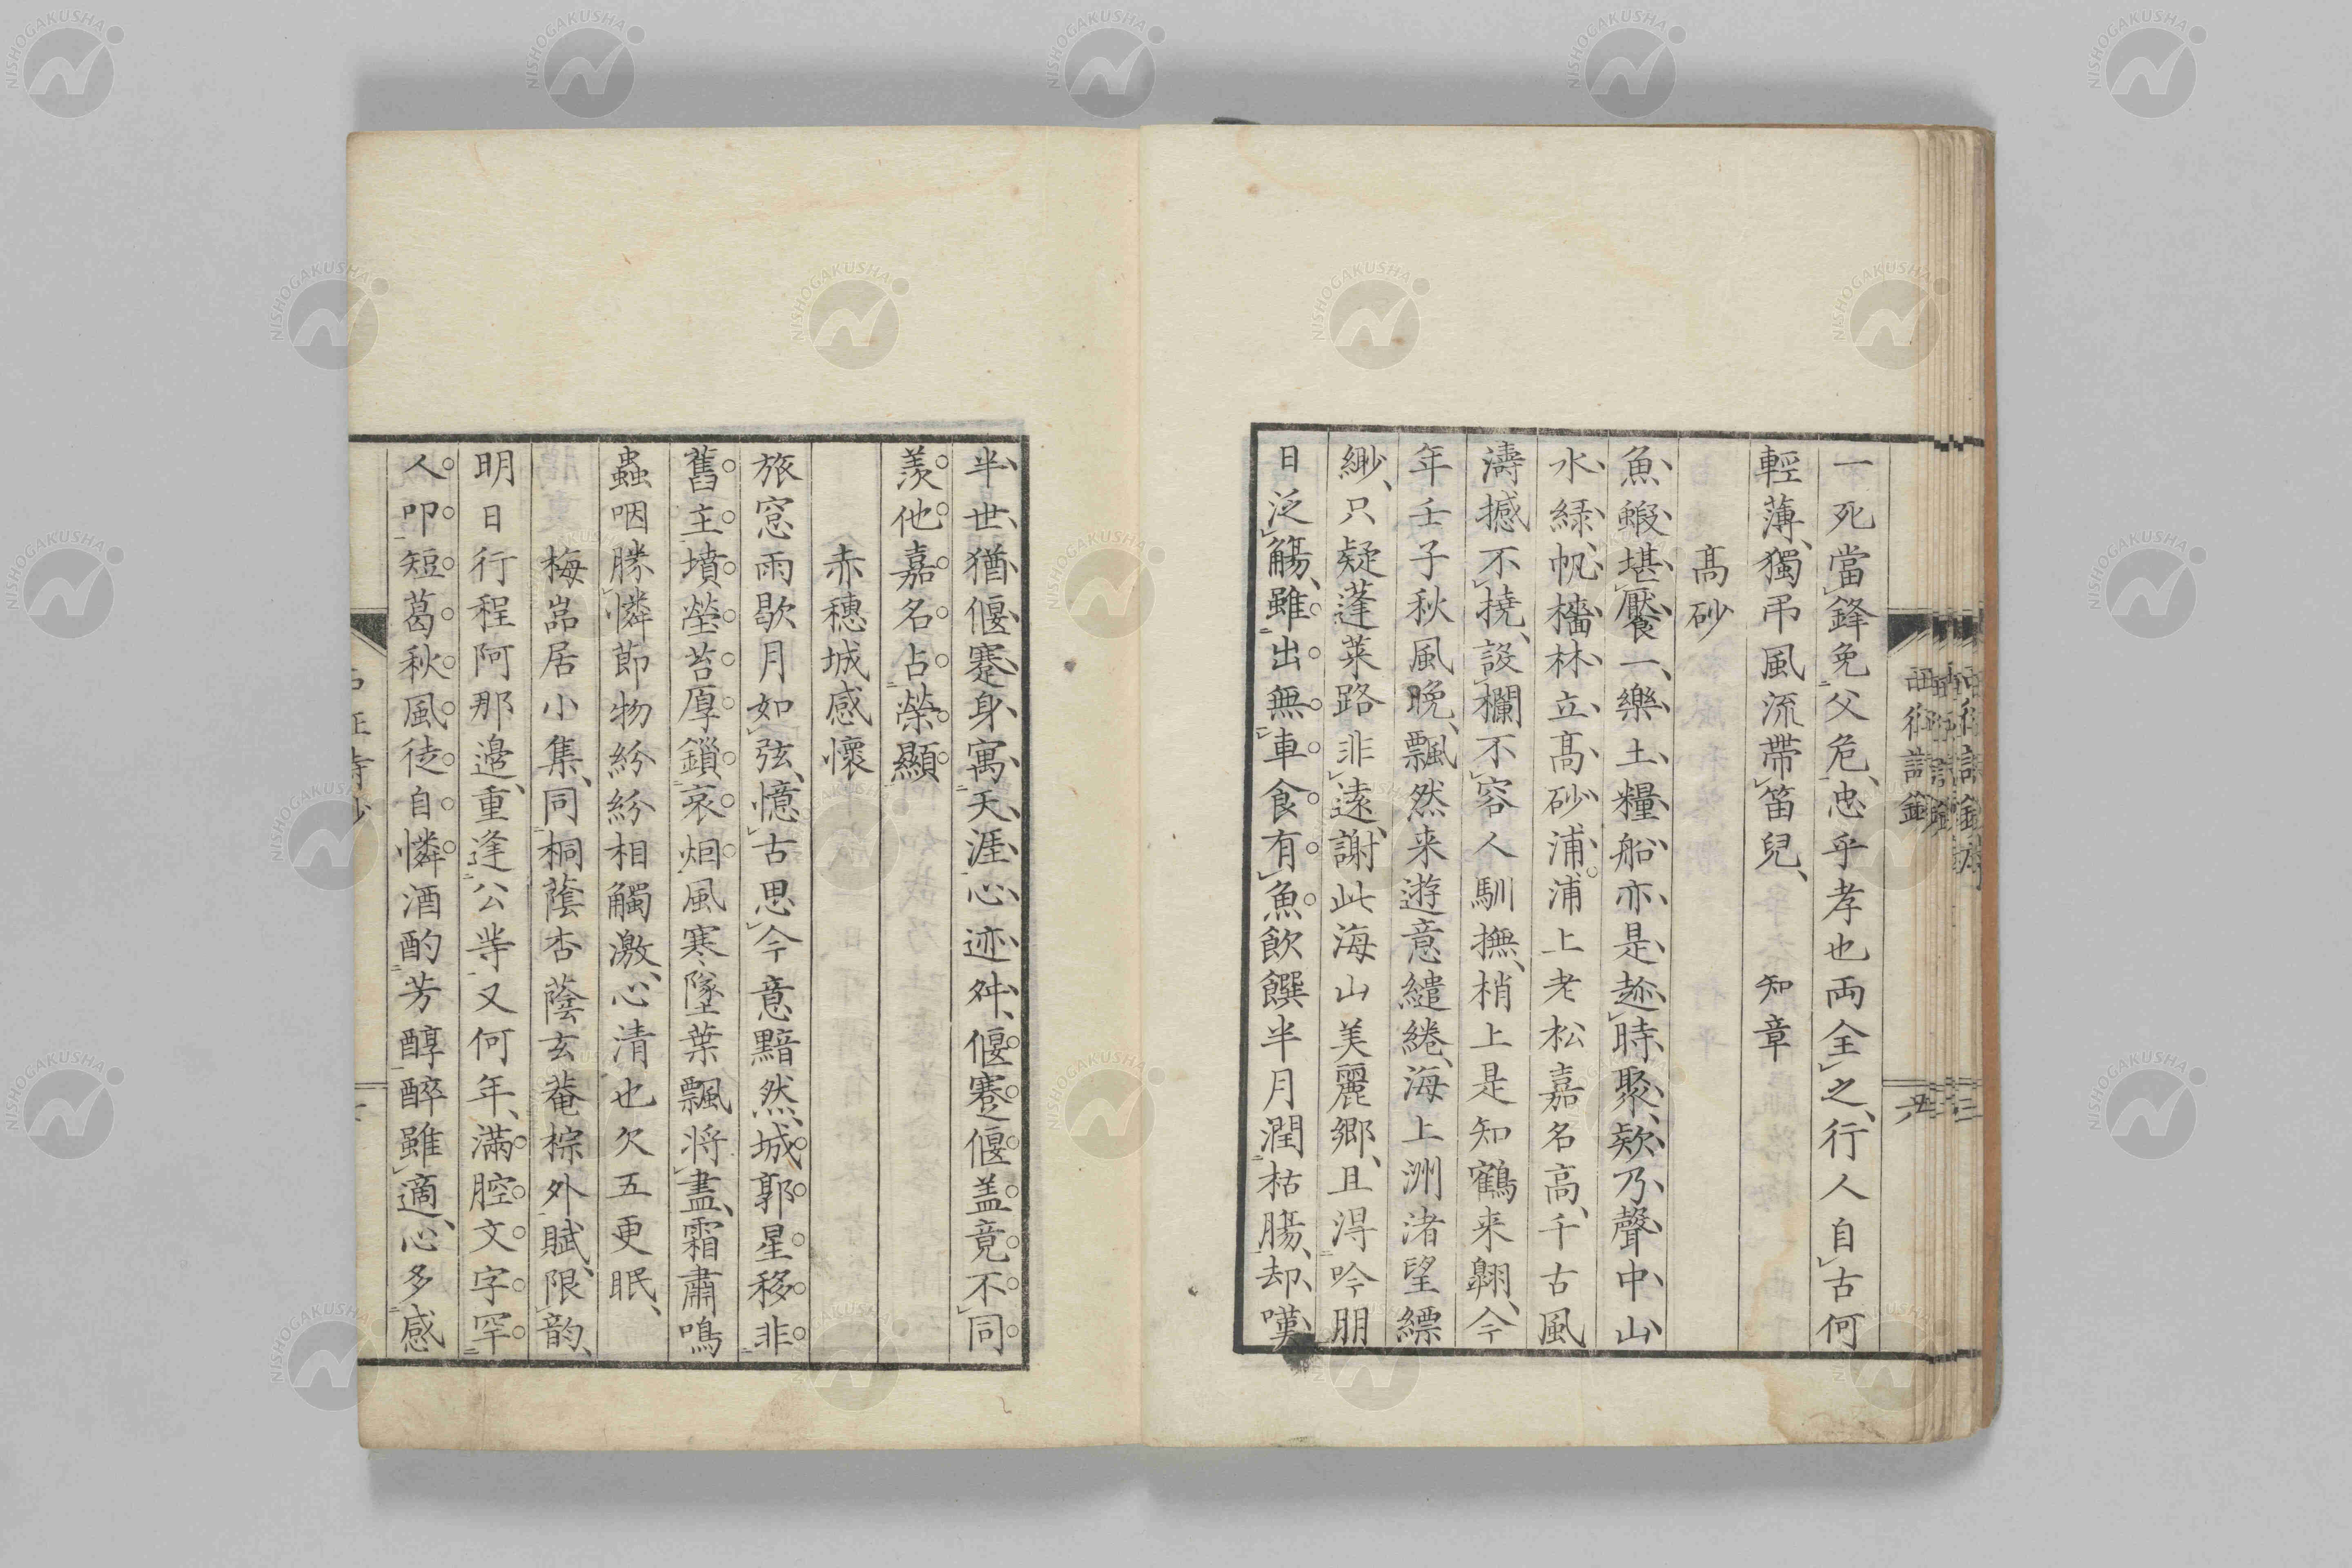 一死當鋒免父危、忠乎孝也両全之、行人自古何
輕薄、獨弔風流帶笛兒、　知章
高砂
魚、蝦、堪、饜、一、樂、土、糧、船、亦、是、趂、時、聚、欸、乃、聲、中、山、
水、緑、帆、檣、林、立、高、砂、浦、浦上老松嘉名高、千古風
濤撼不撓、設欄不容人馴撫、梢上是知鶴来翺、今
年壬子秋風晩、飄然来遊意繾綣、海上洲渚望縹
緲、只疑蓬莱路非遠、謝此海山美麗郷、且淂吟朋
日泛觴、雖出無車食有魚飲饌半月潤枯腸、却嘆、
半、世、猶、偃、蹇、身、寓、天、涯、心、迹、舛、偃蹇偃盖竟不同
羨他嘉名占榮顯
赤穗城感懷
旅窓雨歇月如弦、憶古思今意黯然、城郭星移非
舊主墳塋苔厚鎖哀烟風寒墜葉飄将盡、霜肅鳴
蟲咽勝憐節物紛紛相觸激、心清也欠五更眠、
梅嵓居小集、同桐蔭杏蔭玄菴棕外賦、限韵、
明日行程阿那邉、重逢公等又何年、滿腔文字罕
人叩短葛秋風徒自憐酒酌芳醇醉雖適、心多感
西征詩鈔
六
NISHOGAKUSHA